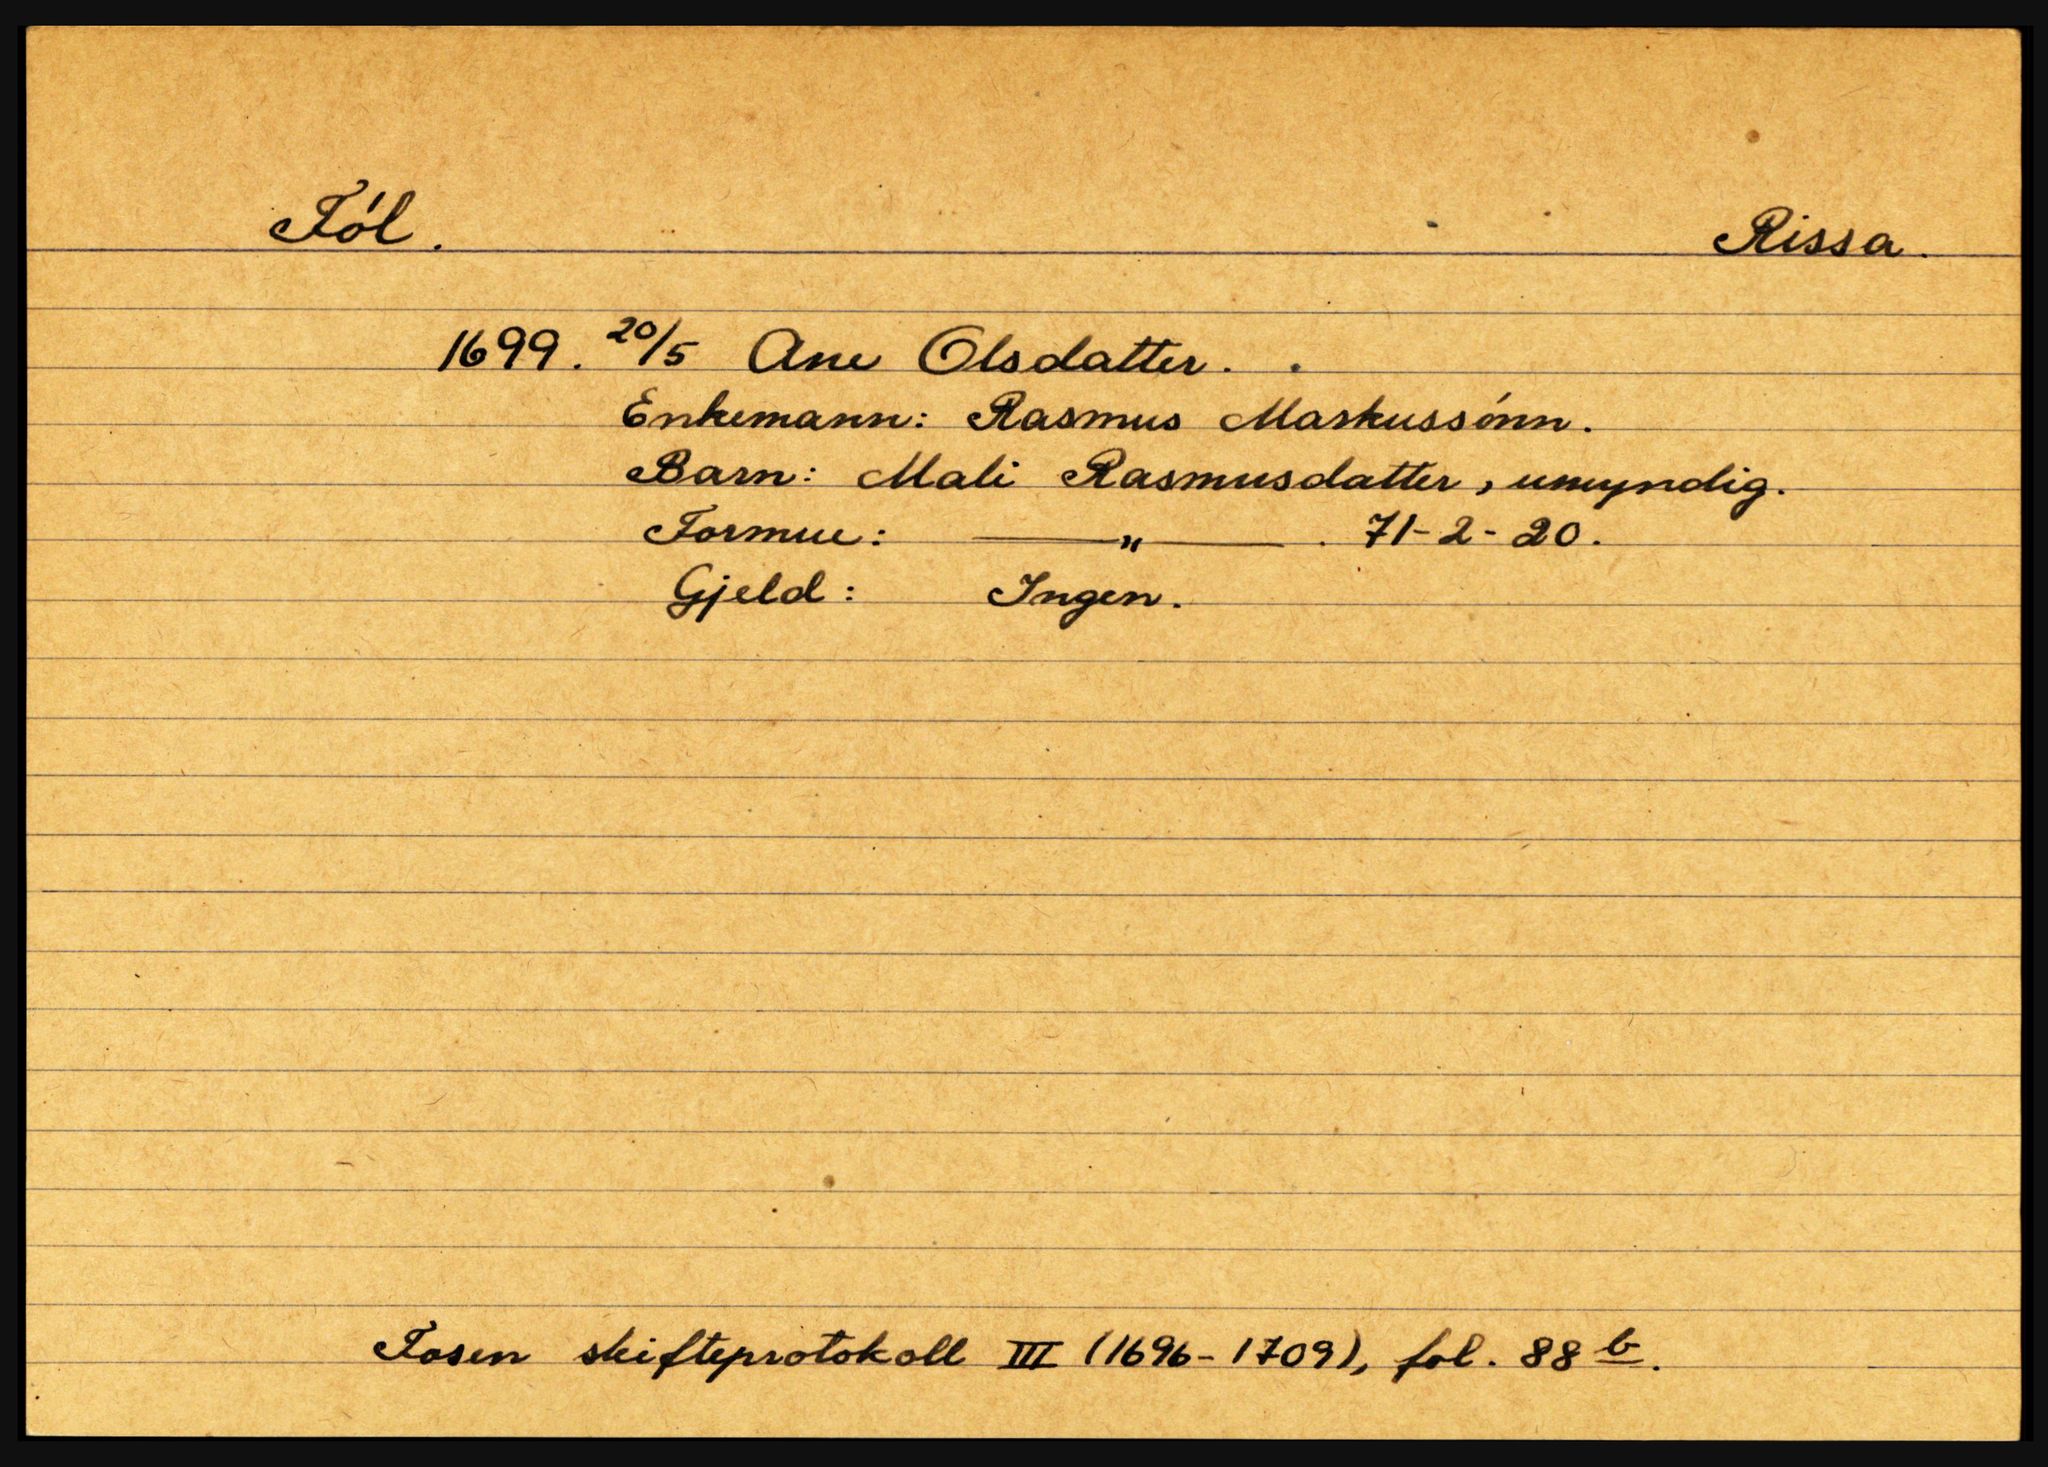 Fól. Rissa.
1699. 20/5 Ane Olsdatter.
Enkemann: Rasmus Markussónn.
Barn: Mali Rasmusdatter, umyndig.
Formue: —"— . 71-2-20.
Gjeld: Ingen.
Fosen skifteprotokoll III (1696-1709), fol. 88 b.